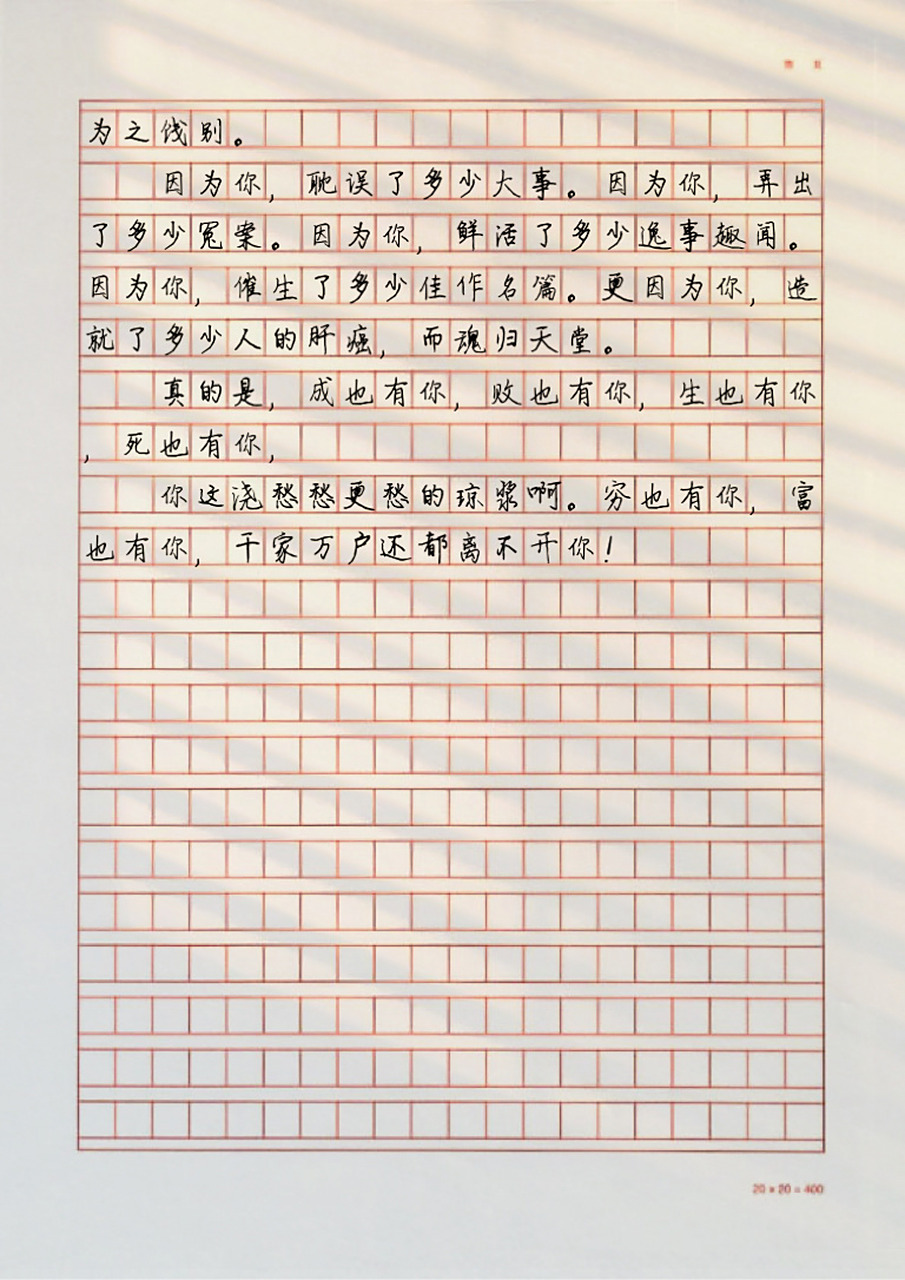 为之饯别。
因为你，耽误了多少大事。因为你，弄出
了多少冤案。因为你，鲜活了多少逸事趣闻。
因为你，催生了多少佳作名篇。更因为你，造
就了多少人的肝癌，而魂归天堂。
真的是，成也有你，败也有你，生也有你
，死也有你，
你这浇愁愁更愁的琼浆啊。穷也有你，富
也有你，千家万户还都离不开你！
20×20=400